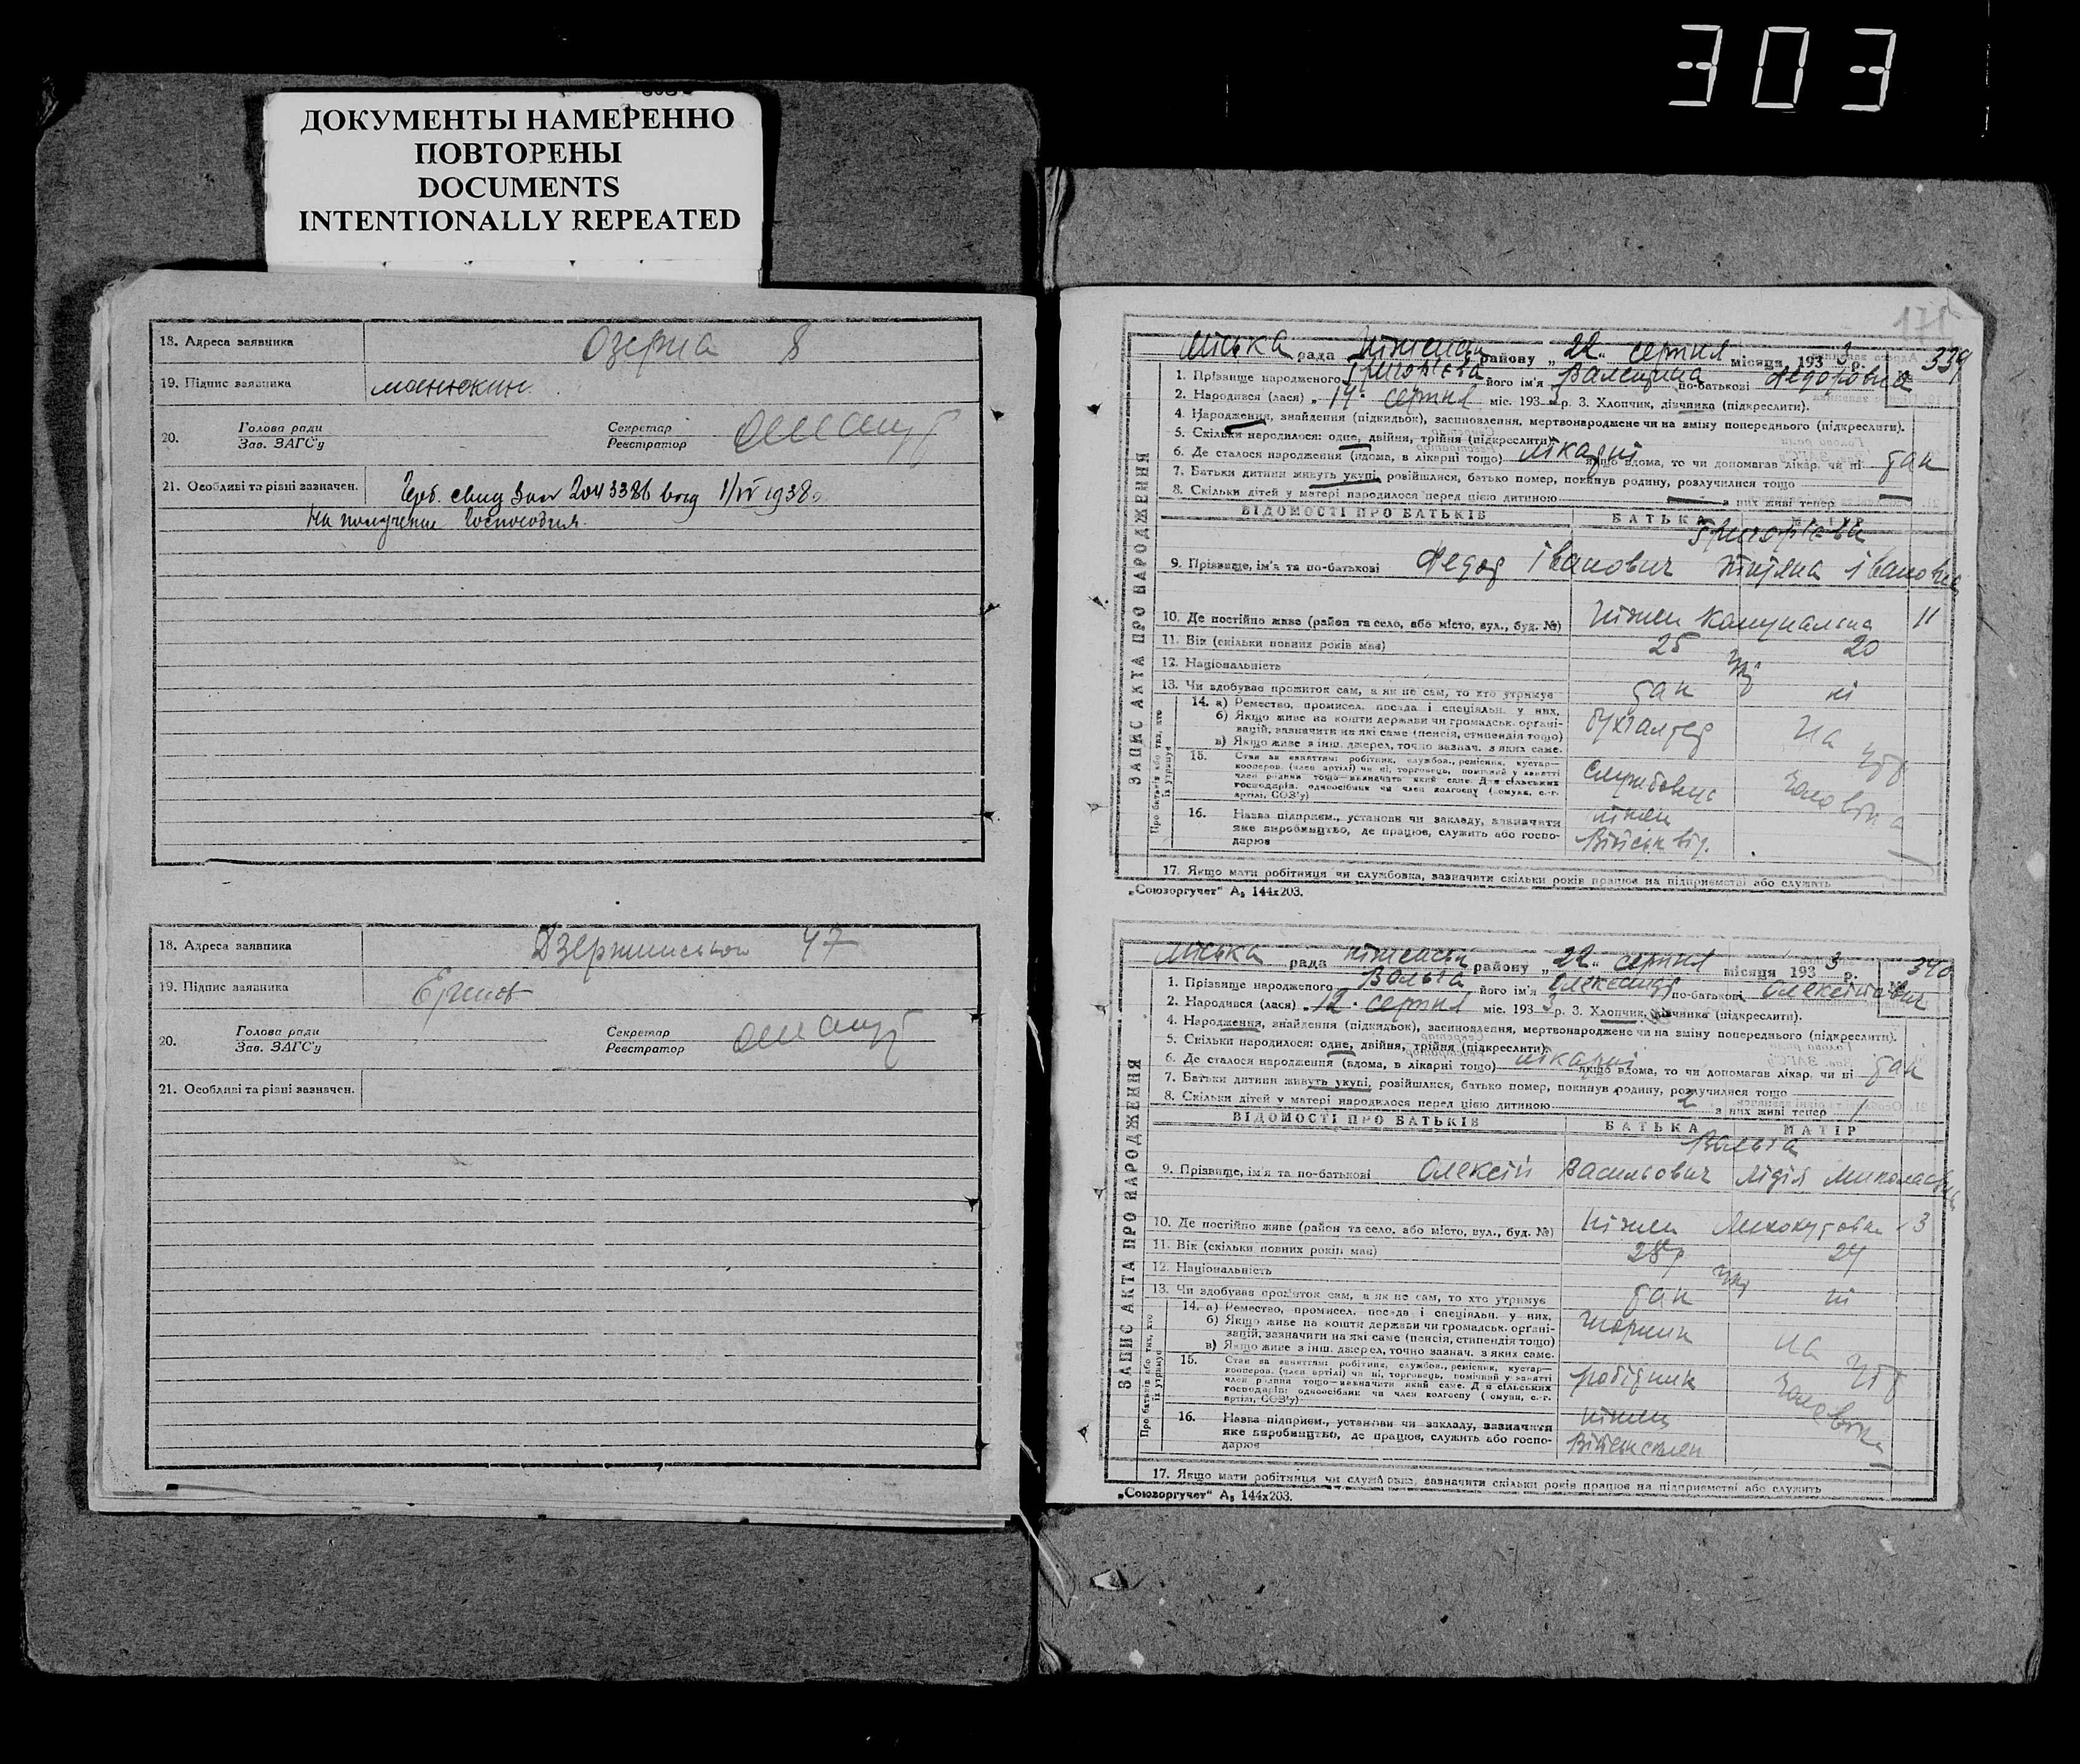 303
ДОКУМЕНТЫ НАМЕРЕННО
ПОВТОРЕНЫ
DOCUMENTS
INTENTIONALLY REPEATED
18. Адреса заявника Озерна 8
19. Підпис заявника манюкин
20. Голова ради
Зав. ЗАГС'у
Секретар
Реєстратор
21. Особливі та різні зазначен. 1938
На получение
18. Адреса заявника 47
19. Підпис заявника
20. Голова ради
Зав. ЗАГС'у
Секретар
Реєстратор
21. Особливі та різні зазначен.
171
Міська рада Ніженськ району „22" серпня місяця 1933 р. 339
ЗАПИС АКТА ПРО НАРОДЖЕННЯ
1. Прізвище народженого Григор'єва його ім'я Валентина по-батькові Федоровна
2. Народився (лася) „14" серпня міс. 1933 р. 3. Хлопчик, дівчинка (підкреслити).
4. Народження, знайдення (підкидьок), засиновлення, мертвонароджене чи на зміну попереднього (підкреслити).
5. Скільки народилося: одне, двійня, трійня (підкреслити)
6. Де сталося народження (вдома, в лікарні тощо) лікарні якщо вдома, то чи допомагав лікар, чи ні так
7. Батьки дитини живуть укупі, розійшлися, батько помер, покинув родину, розлучилися тощо
8. Скільки дітей у матері народилося перед цією дитиною — з них живі тепер —
ВІДОМОСТІ ПРО БАТЬКІВ БАТЬКА МАТІР
Григор'єви
9. Прізвище, ім'я та по-батькові Федор Іванович Тетяна Івановна
10. Де постійно живе (район та село, або місто, вул., буд. №) Ніжен Комунальна 11
11. Вік (скільки повних років має) 25 20
12. Національність укр
13. Чи здобуває прожиток сам, а як не сам, то хто утримує так ні
Про батьків або тих, хто їх утримує
14. а) Ремество, промисел, посада і спеціяльн. у них,
б) Якщо живе на кошти держави чи громадськ. органі-
зацій, зазначити на які саме (пенсія, стипендія тощо)
в) Якщо живе з інш. джерел, точно зазнач. з яких саме.
бухгалтер На утр
15. Стан за заняттям: робітник, службов., ремісник, кустар—
кооперов. (член артілі) чи ні, торговець, помічний у занятті
член родини тощо—визначати який саме. Для сільських
господарів: одноосібник чи член колгоспу (комуни, с.-г.
артілі, СОЗ'у)
службовец чоловіка
16. Назва підприєм., установи чи закладу, зазначити
яке виробництво, де працює, служить або госпо-
дарює
Ніжен
17. Якщо мати робітниця чи службовка, зазначити скільки років працює на підприємстві або служить
„Союзоргучет" А5 144х203.
Міська рада Ніженськ району „22" серпня місяця 1933 р. 340
ЗАПИС АКТА ПРО НАРОДЖЕННЯ
1. Прізвище народженого його ім'я Олександр по-батькові Олексійович
2. Народився (лася) „12" серпня міс. 1933 р. 3. Хлопчик, дівчинка (підкреслити).
4. Народження, знайдення (підкидьок), засиновлення, мертвонароджене чи на зміну попереднього (підкреслити).
5. Скільки народилося: одне, двійня, трійня (підкреслити)
6. Де сталося народження (вдома, в лікарні тощо) лікарні якщо вдома, то чи допомагав лікар, чи ні так
7. Батьки дитини живуть укупі, розійшлися, батько помер, покинув родину, розлучилися тощо
8. Скільки дітей у матері народилося перед цією дитиною 2 з них живі тепер 1
ВІДОМОСТІ ПРО БАТЬКІВ БАТЬКА МАТІР
9. Прізвище, ім'я та по-батькові Олексій Васильович Лідія Миколаєвна
10. Де постійно живе (район та село, або місто, вул., буд. №) Ніжен 3
11. Вік (скільки повних років має) 28р 24
12. Національність укр
13. Чи здобуває прожиток сам, а як не сам, то хто утримує так ні
Про батьків або тих, хто їх утримує
14. а) Ремество, промисел, посада і спеціяльн. у них,
б) Якщо живе на кошти держави чи громадськ. органі-
зацій, зазначити на які саме (пенсія, стипендія тощо)
в) Якщо живе з інш. джерел, точно зазнач. з яких саме.
на утр
15. Стан за заняттям: робітник, службов., ремісник, кустар—
кооперов. (член артілі) чи ні, торговець, помічний у занятті
член родини тощо—визначати який саме. Для сільських
господарів: одноосібник чи член колгоспу (комуни, с.-г.
артілі, СОЗ'у)
робітник чоловіка
16. Назва підприєм., установи чи закладу, зазначити
яке виробництво, де працює, служить або госпо-
дарює
Ніжен
17. Якщо мати робітниця чи службовка, зазначити скільки років працює на підприємстві або служить
„Союзоргучет" А5 144х203.